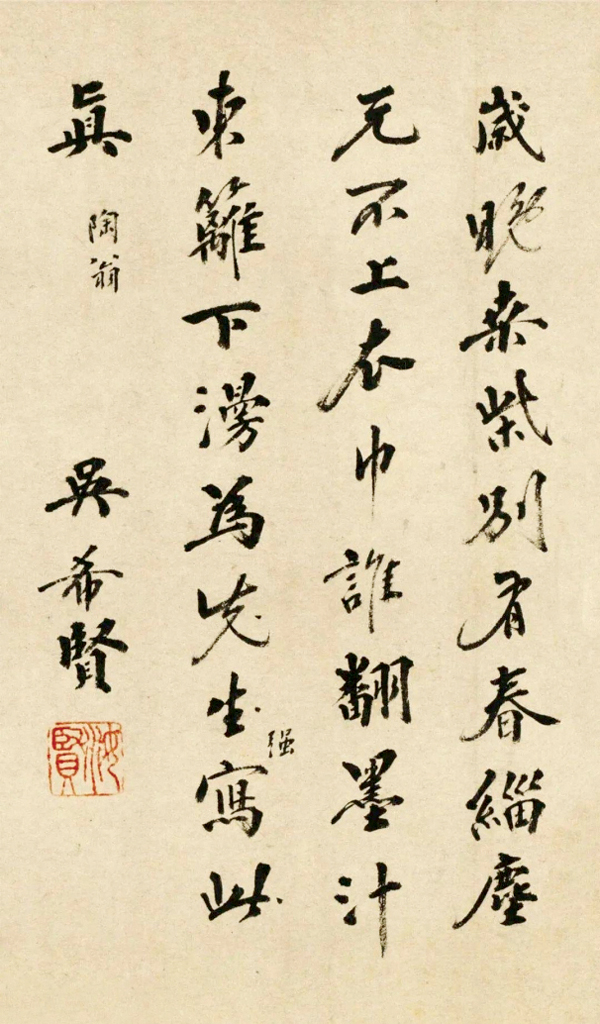 歲晚桒柴別有春緇塵
元不上衣巾誰翻墨汁
東籬下漫為先生寫此
强
眞
陶翁
吳希賢
汝賢